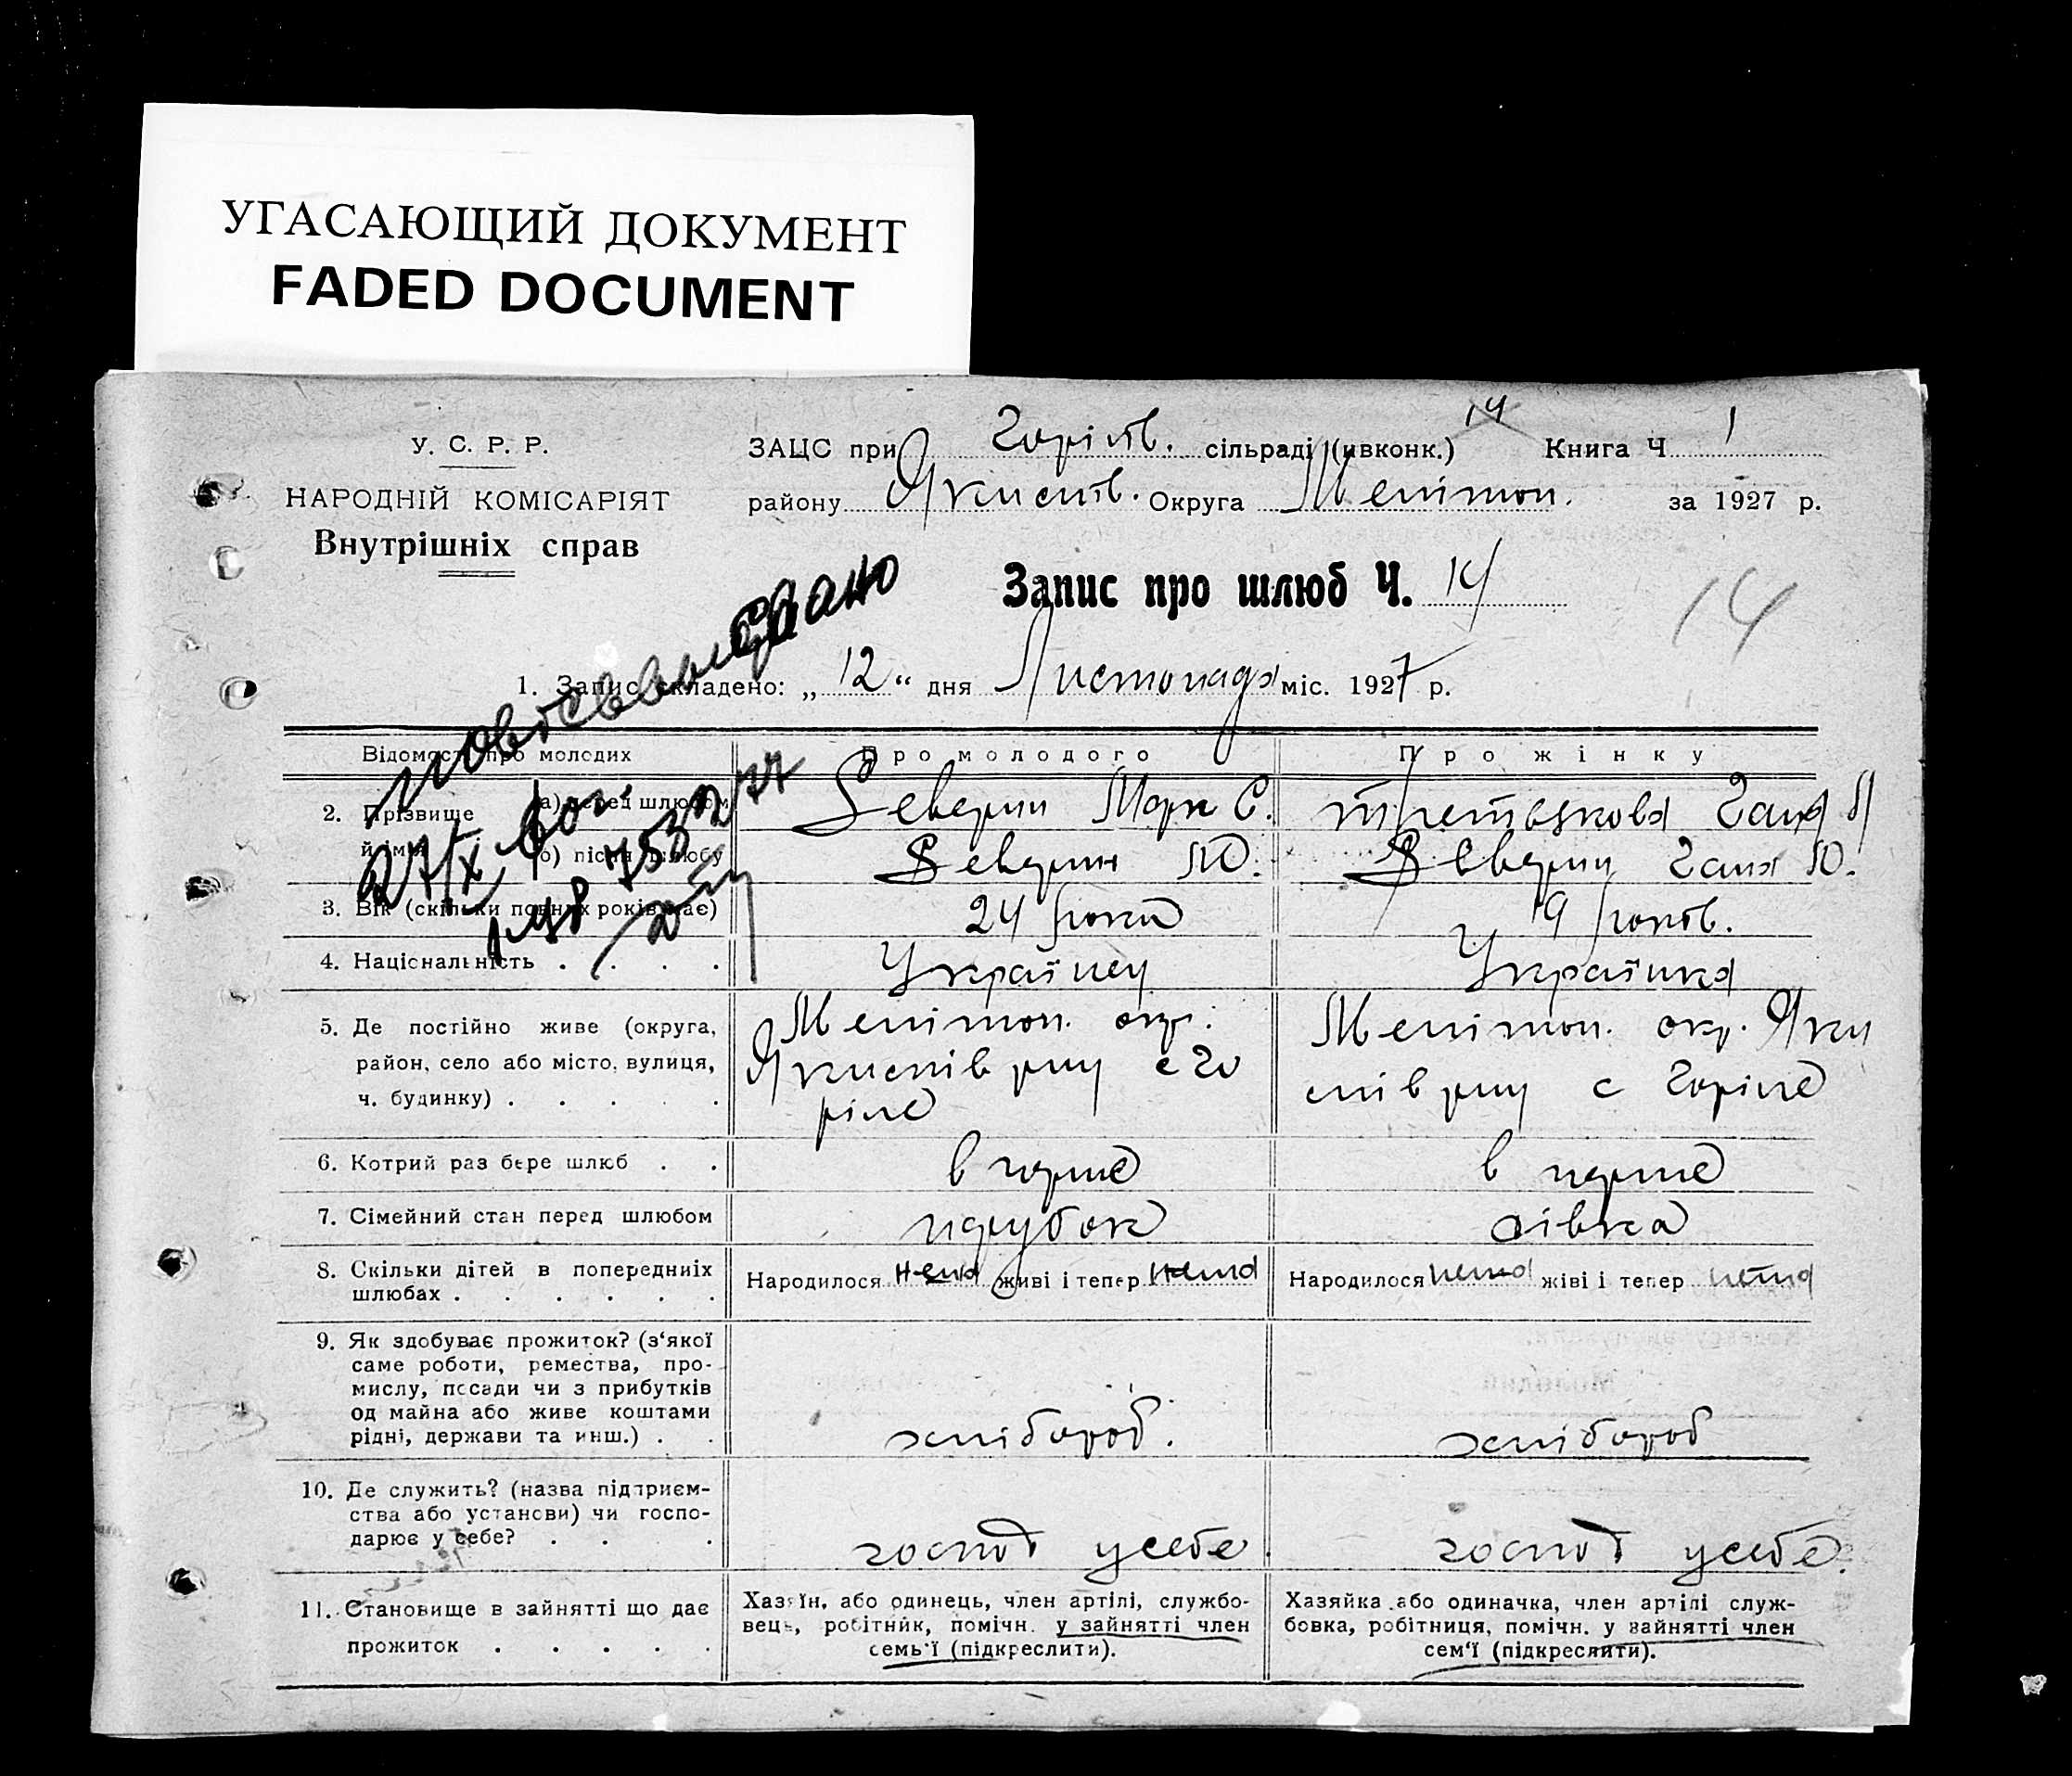 УГАСАЮЩИЙ ДОКУМЕНТ
FADED DOCUMENT
У. С. Р. Р.
НАРОДНІЙ КОМІСАРІЯТ
Внутрішніх справ
ЗАЦС при Горілів. сільраді (ивконк.) 14 Книга Ч 1
району Якимів. Округа Мелітоп. за 1927 р.
Запис про шлюб Ч. 14
14
1. Запис складено: „ 12 “ дня Листопада міс. 1927 р.
Відомості про молодих Про молодого Про жінку
2. Прізвище й ім'я а) перед шлюбом Северин Марк С. Третьякова Ганя
б) після шлюбу Северин М. Северин Ганя
3. Вік (скільки повних років має) 24 роки 19 років.
4. Національність . . . . Українец Українка
5. Де постійно живе (округа, район, село або місто, вулиця, ч. будинку) . . . . .
Мелітоп. окр.
Якимів рну с Го
ріле
Мелітоп. окр. Яки
мів рну с Горіле
6. Котрий раз бере шлюб . . в перше в перше
7. Сімейний стан перед шлюбом парубок дівка
8. Скільки дітей в попередниіх шлюбах . . . . . .
Народилося нема живі і тепер нема Народилося нема жіві і тепер нема
9. Як здобуває прожиток? (з‘якої
саме роботи, ремества, про-
мислу, посади чи з прибутків
од майна або живе коштами
рідні, держави та инш.) . . хлібороб. хлібороб
10. Де служить? (назва підприєм-
ства або установи) чи госпо-
дарює у себе? . . . . господ у себе. господ у себе.
11. Становище в зайнятті що дає
прожиток . . . . .
Хазяїн, або одинець, член артілі, службо-
вець, робітник, помічн. у зайнятті член
семь‘ї (підкреслити).
Хазяйка або одиначка, член артілі служ-
бовка, робітниця, помічн. у зайнятті член
сем‘ї (підкреслити).